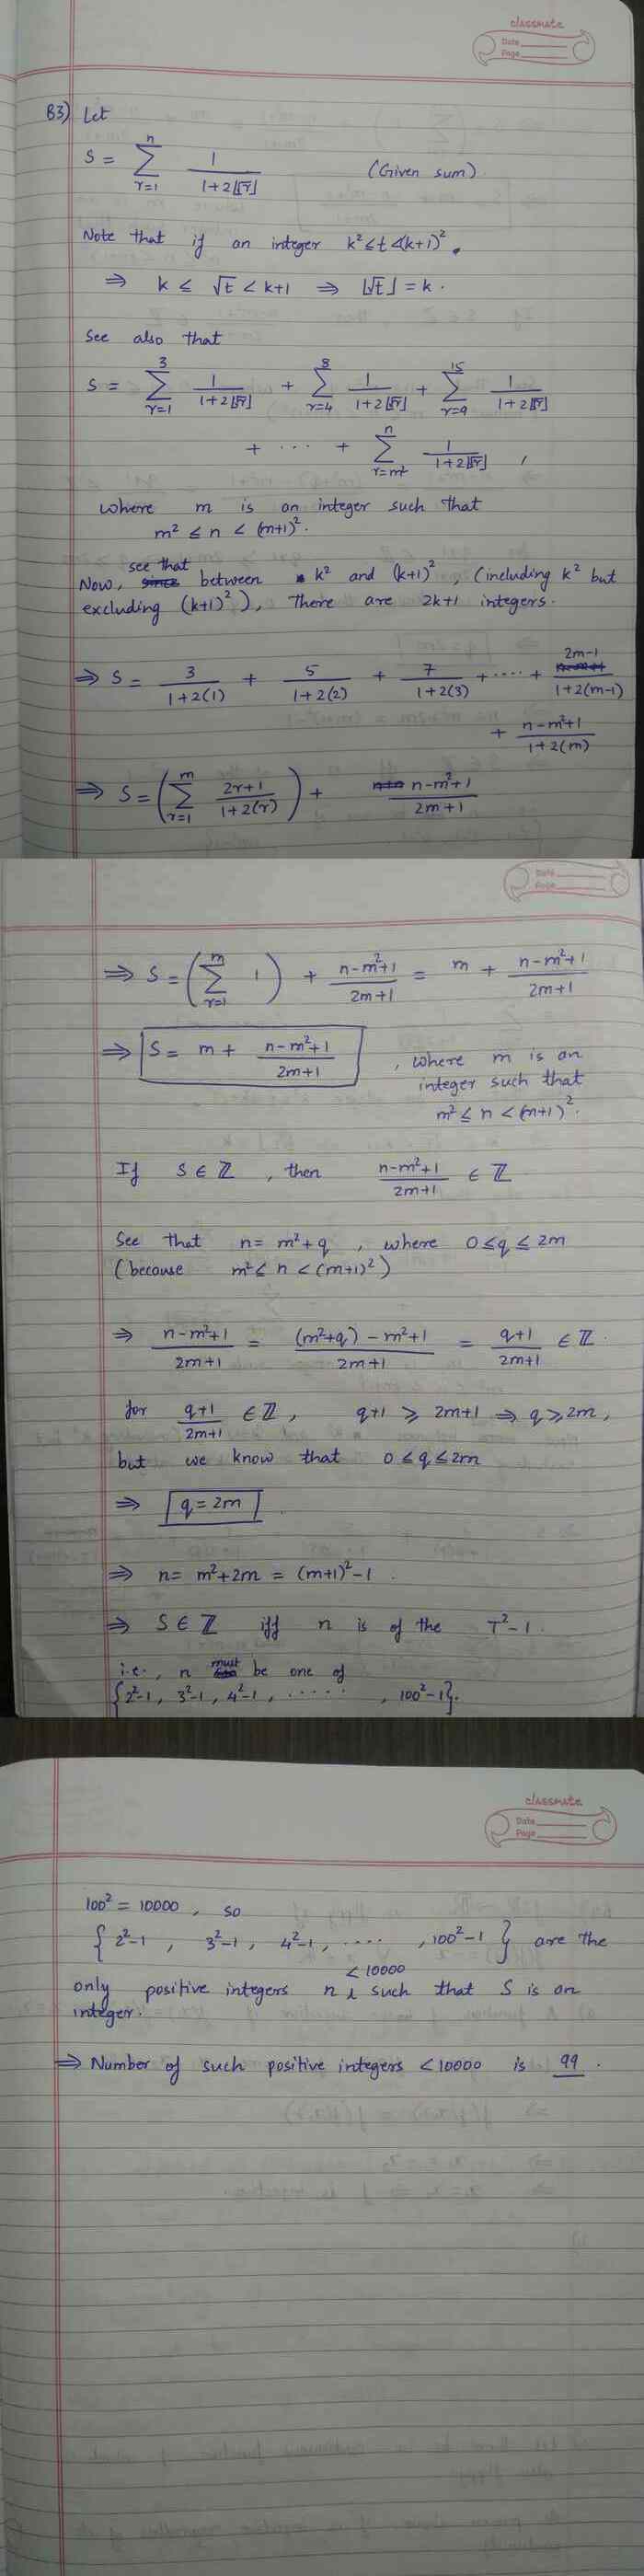 classmate
Date
Page
B3) Let
S = \sum_{r=1}^{n} \frac{1}{1+2⌊√r⌋} (Given sum)
Note that if an integer k² ≤ t < (k+1)².
⇒ k ≤ √t < k+1 ⇒ ⌊√t⌋ = k.
See also that
S = \sum_{r=1}^{3} \frac{1}{1+2⌊√r⌋} + \sum_{r=4}^{8} \frac{1}{1+2⌊√r⌋} + \sum_{r=9}^{15} \frac{1}{1+2⌊√r⌋}
+ ··· + \sum_{r=m²}^{n} \frac{1}{1+2⌊√r⌋} ,
where m is an integer such that
m² ≤ n < (m+1)².
Now, see that between k² and (k+1)², (including k² but
excluding (k+1)²), there are 2k+1 integers.
⇒ S = \frac{3}{1+2(1)} + \frac{5}{1+2(2)} + \frac{7}{1+2(3)} + ···· + \frac{2m-1}{1+2(m-1)}
+ \frac{n-m²+1}{1+2(m)}
⇒ S = (\sum_{r=1}^{m} \frac{2r+1}{1+2(r)}) + \frac{n-m²+1}{2m+1}
Date
Page
⇒ S = (\sum_{r=1}^{m} 1) + \frac{n-m²+1}{2m+1} = m + \frac{n-m²+1}{2m+1}
⇒ S = m + \frac{n-m²+1}{2m+1} , where m is an
integer such that
m² ≤ n < (m+1)².
If S ∈ ℤ , then \frac{n-m²+1}{2m+1} ∈ ℤ
See that n = m²+q , where 0 ≤ q ≤ 2m
(because m² ≤ n < (m+1)²)
⇒ \frac{n-m²+1}{2m+1} = \frac{(m²+q)-m²+1}{2m+1} = \frac{q+1}{2m+1} ∈ ℤ.
for \frac{q+1}{2m+1} ∈ ℤ, q+1 ≥ 2m+1 ⇒ q ≥ 2m,
but we know that 0 ≤ q ≤ 2m
⇒ q = 2m .
⇒ n = m²+2m = (m+1)²-1 .
⇒ S ∈ ℤ iff n is of the T²-1.
i.e., n must be one of
{2²-1, 3²-1, 4²-1, ····· , 100²-1}.
classmate
Date
Page
100² = 10000 , so
{ 2²-1 , 3²-1 , 4²-1, ···· , 100²-1 } are the
only positive integers n < 10000 such that S is an
integer.
⇒ Number of such positive integers < 10000 is 99 .